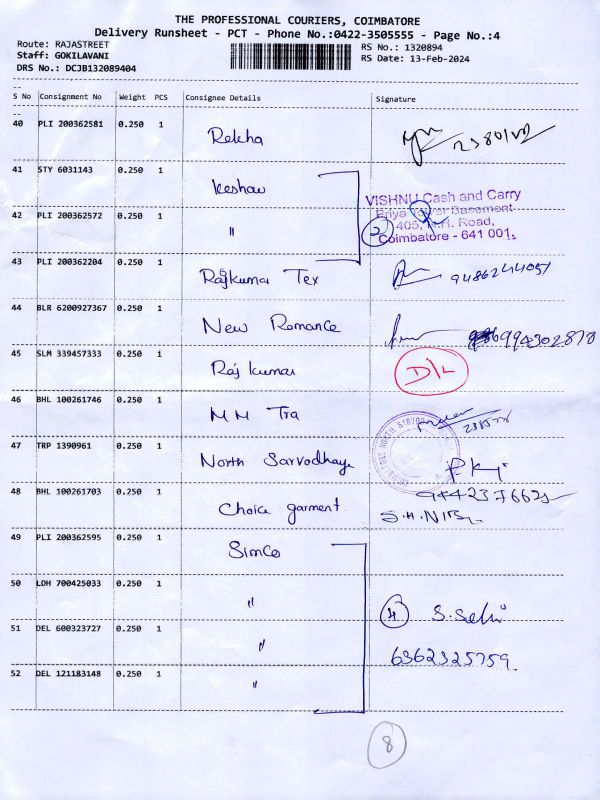 THE PROFESSIONAL COURIERS, COIMBATORE
Delivery Runsheet - PCT - Phone No.:0422-3505555 - Page No.:4
Route: RAJASTREET
RS No.: 1320894
Staff: GOKILAVANI
RS Date: 13-Feb-2024
DRS No.: DCJB132089404
S No Consignment No Weight PCS Consignee Details Signature
40 PLI 200362581 0.250 1 Rekha
41 STY 6031143 0.250 1 Keshav
VISHNU Cash and Carry
Priya Tower Basement
42 PLI 200362572 0.250 1 "
2 405, Road,
Coimbatore - 641 001.
43 PLI 200362204 0.250 1 Rajkumar Tex 9486244051
44 BLR 6200927367 0.250 1 New Romance 6994302878
45 SLM 339457333 0.250 1 Raj kumar D/L
46 BHL 100261746 0.250 1 M M Tra
47 TRP 1390961 0.250 1 North Sarvodhaya
48 BHL 100261703 0.250 1 Choice garment.
49 PLI 200362595 0.250 1 Simco
50 LDH 700425033 0.250 1 "
4 S. Selvi
51 DEL 600323727 0.250 1 "
6362325759.
52 DEL 121183148 0.250 1 "
8